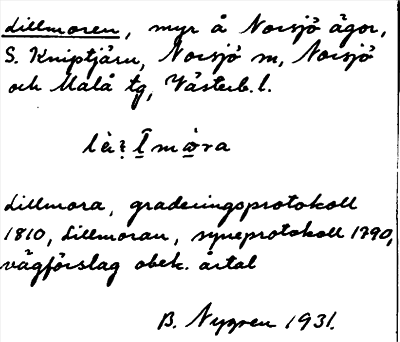 Lillmoren, myr å Norsjö ägor,
S. Kniptjärn, Norsjö sn, Norsjö
och Malå tg, Västerb. l.
Lillmora, graderingsprotokoll
1810, Lillmoran, syneprotokoll 1790,
vägförslag obek. årtal
B. Nygren 1931.